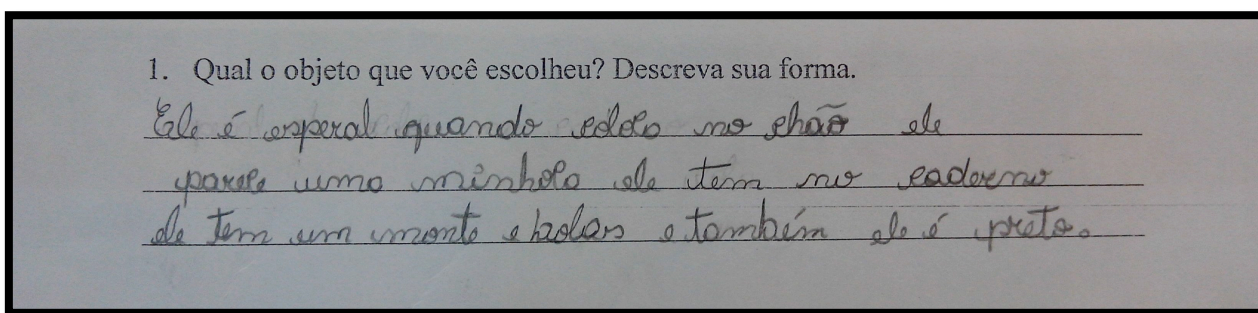 1. Qual o objeto que você escolheu? Descreva sua forma.
Ele é esperal quando no chão ele
parece uma minhoca ele tem no caderno
ele tem um monte e bolas e também ele é preto.